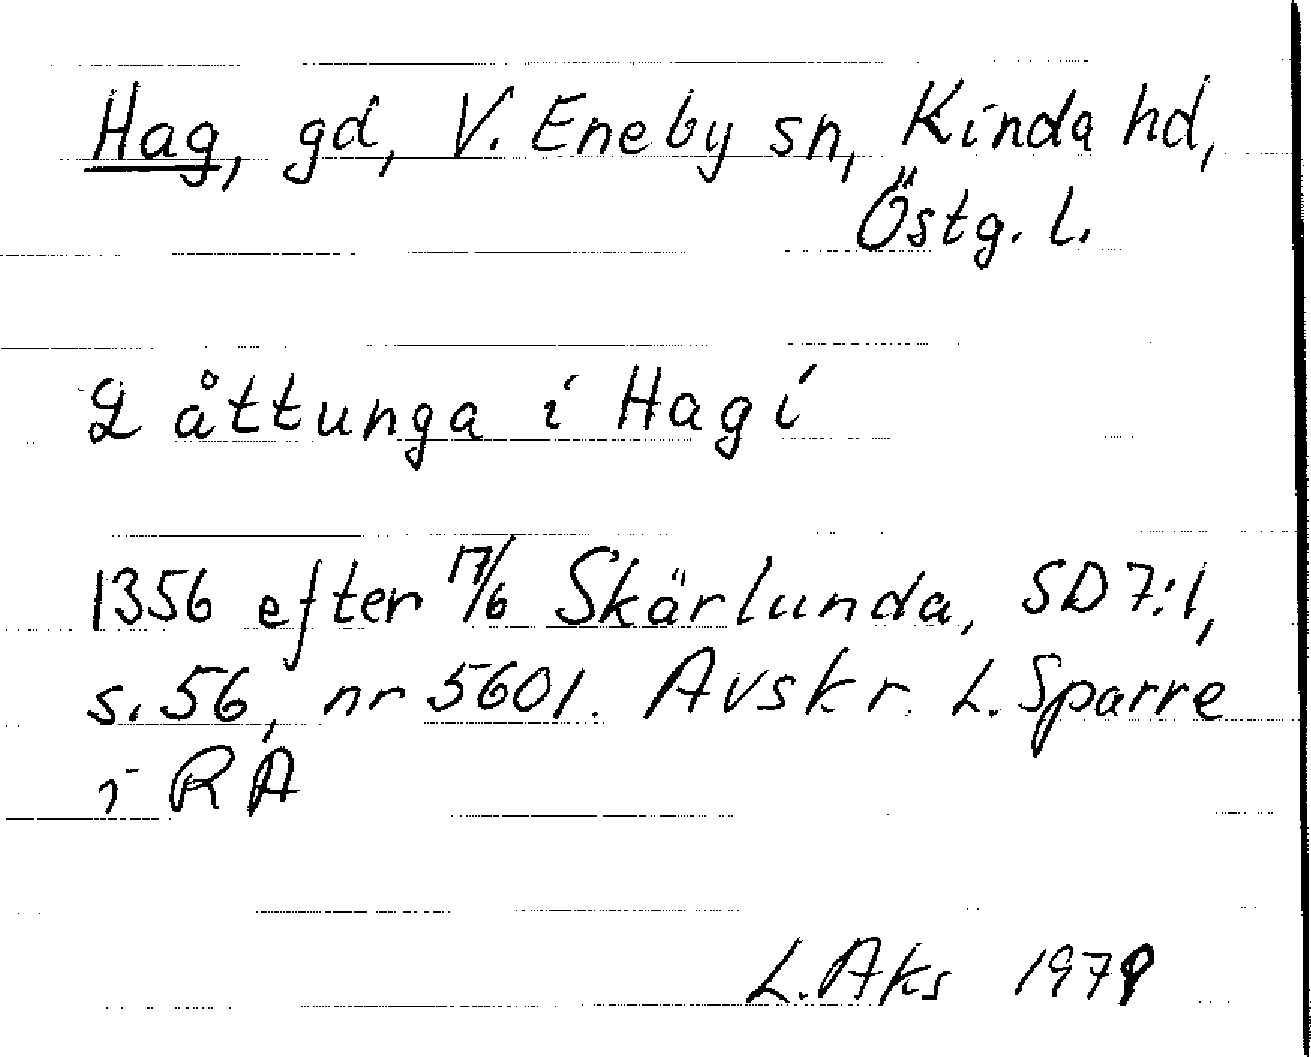 Hag, gd, V. Eneby sn, Kinda hd,
Östg. l.
2 åttunga i Hagi
1356 efter 17/6 Skärlunda, SD 7:1,
s. 56, nr 5601. Avskr. L. Sparre
i RA
L. Aks 1979